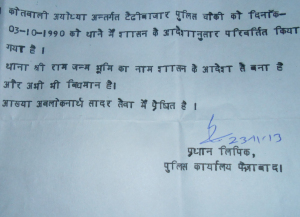 कोतवाली अयोध्या अन्तर्गत टेढीबाजार पुलिस चौकी को दिनांक-
03-10-1990 को थाने में शासन के आदेशानुसार परिवर्तित किया
गया है ।
थाना श्री राम जन्म भूमि का नाम शासन के आदेश से बना है
और अभी भी विद्यमान है।
आख्या अवलोकनार्थ सादर सेवा में प्रेषित है ।
23-11-13
प्रधान लिपिक,
पुलिस कार्यालय फैजाबाद।